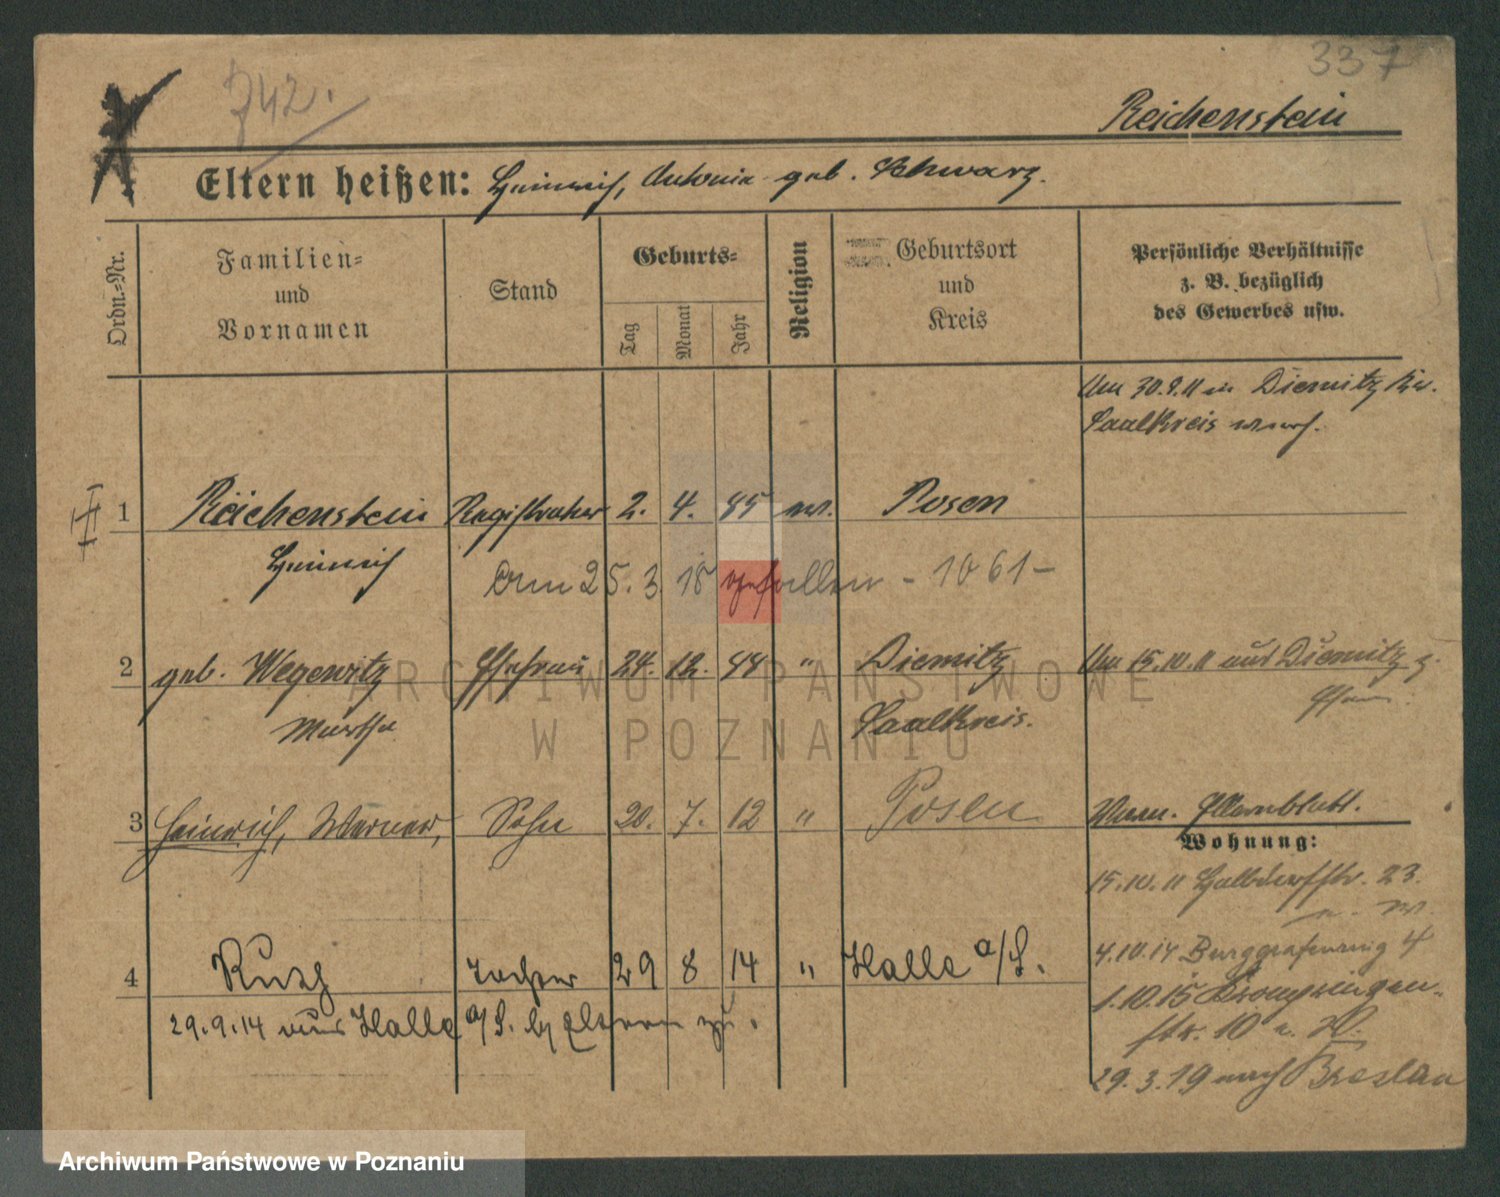 337
742.
Reichenstein
Eltern heißen: Heinrich, Antonie geb. Schwarz.
Ordn.-Nr.
Familien- und Vornamen
Stand
Geburts-
Tag
Monat
Jahr
Religion
Geburtsort und Kreis
Persönliche Verhältnisse
z. B. bezüglich
des Gewerbes usw.
Am 30.9.11 in Diemitz Kr.
Saalkreis verh.
1 Reichenstein Registrator 2. 4. 85 ev. Posen
Heinrich
Am 25.3.18 gefallen - 1061 -
2 geb. Wegewitz Ehefrau 24. 12. 88 " Diemitz Am 15.10.11 aus Diemitz z.
Martha Saalkreis.
3 Heinrich, Werner, Sohn 20. 7. 12 " Posen Elternblatt.
Wohnung:
15.10.11 Halbdorfstr. 23.
4.10.14 Burggrafenring 4
4 Ruth Tochter 29 8 14 " Halle a/S.
1.10.15 Kronprinzen-
29.9.14 aus Halle a/S. b/ Eltern zu.
str. 10
29.3.19 nach Breslau
ARCHIWUM PAŃSTWOWE
W POZNANIU
Archiwum Państwowe w Poznaniu